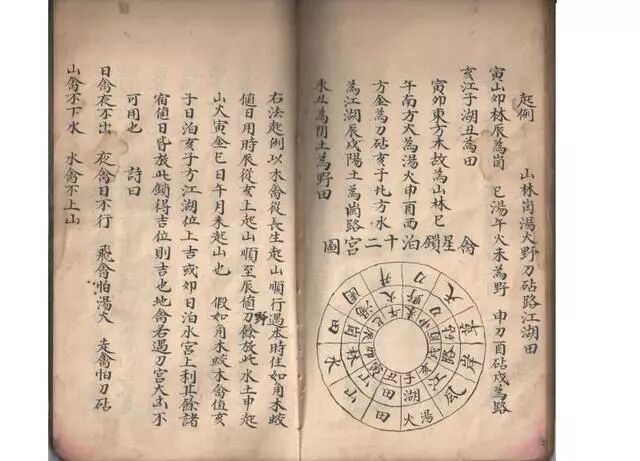 起例 山林崗湯火野刀砧路江湖田
寅山卯林辰為崗 巳湯午火未為野 申刀酉砧戌為路
亥江子湖丑為田
寅卯東方木故為山林巳
午南方火為湯火申酉西
方金為刀砧亥子北方水
為江湖辰戌陽土為崗路
未丑為阴土為野田
禽星鎖泊十二宮圖
子
湖
湯火
亥
江
風
丑
田
田
山
山
林
水
崗
田
湯
園
火
井
野
刀
刀
火
右法起例以木禽從長生起山順行遇本時住如角木蛟
值日用時辰從亥上起山順至辰值刀餘放此水土申起
野
山火寅金巳日午月未起山也 假如角木蛟木禽值亥
子日泊亥子方江湖位上吉或卯日泊水宮上利其餘諸
宿值日皆放此鎖得吉位則吉也地禽若遇刀宮大凶不
可用也 詩曰
日禽夜不出 夜禽日不行 飛禽怕湯火 走禽怕刀砧
山禽不下水 水禽不上山